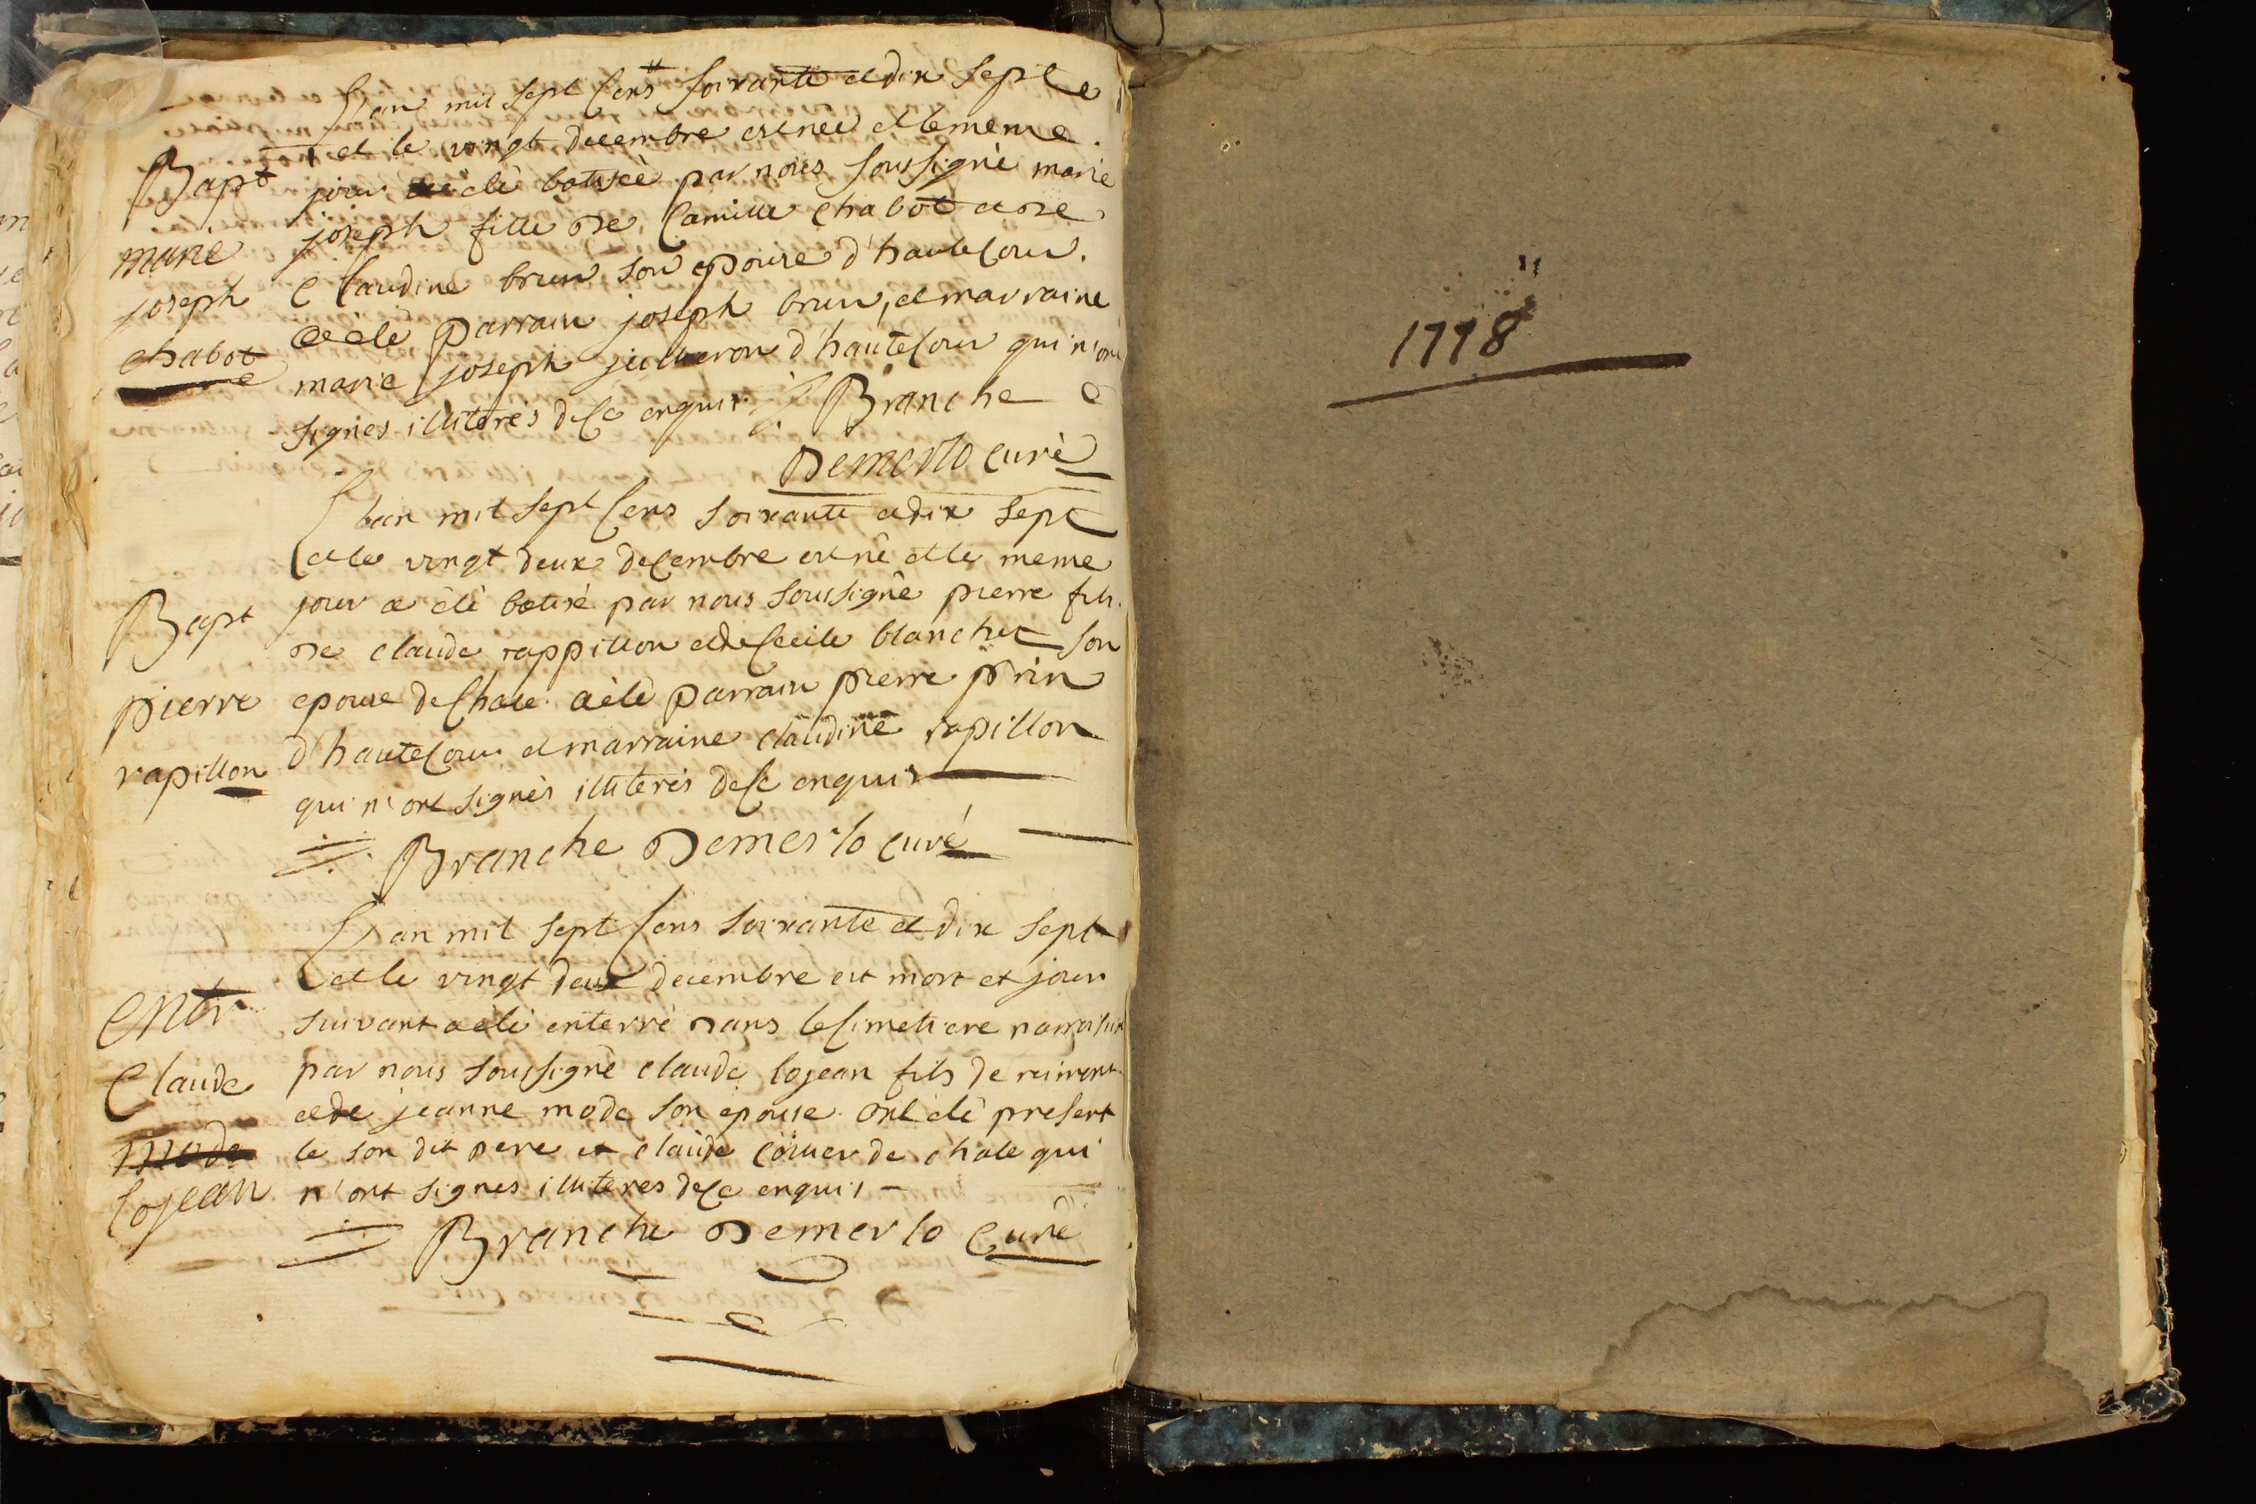 L'an mil sept cens soixante et dix sept
et le vingt decembre est née et le meme
Bapt
jour a été batisée par nous soussigné marie
marie
joseph
chabot
joseph fille de Camille Chabot et de
Claudine brun son epouse d'hautecour.
a été parrain joseph brun, et marraine
marie joseph d'hautecour qui n'ont
signés illiterés de ce enquis. Branche
Demerlo curé
L'an mil sept cens soixante et dix sept
et le vingt deux decembre est né et le meme
Bapt
pierre
rapillon
jour a été batisé par nous soussigné pierre fils
de claude rappillon et de Cecile blanchet son
epouse de Chale. a été parrain pierre prin
d'hautecour et marraine claudine rapillon
qui n'ont signés illiterés de ce enquis
Branche Demerlo curé
L'an mil sept cens soixante et dix sept
et le vingt deux decembre est mort et jour
entr
Claude
mode
lojean
suivant a été enterré dans le cimetiere
par nous soussigné claude lojean fils de
et de jeanne mode son epouse. ont été present
le son dit pere et claude de chale qui
n'ont signes illiteres de ce enquis
Branche Demerlo Curé
1778